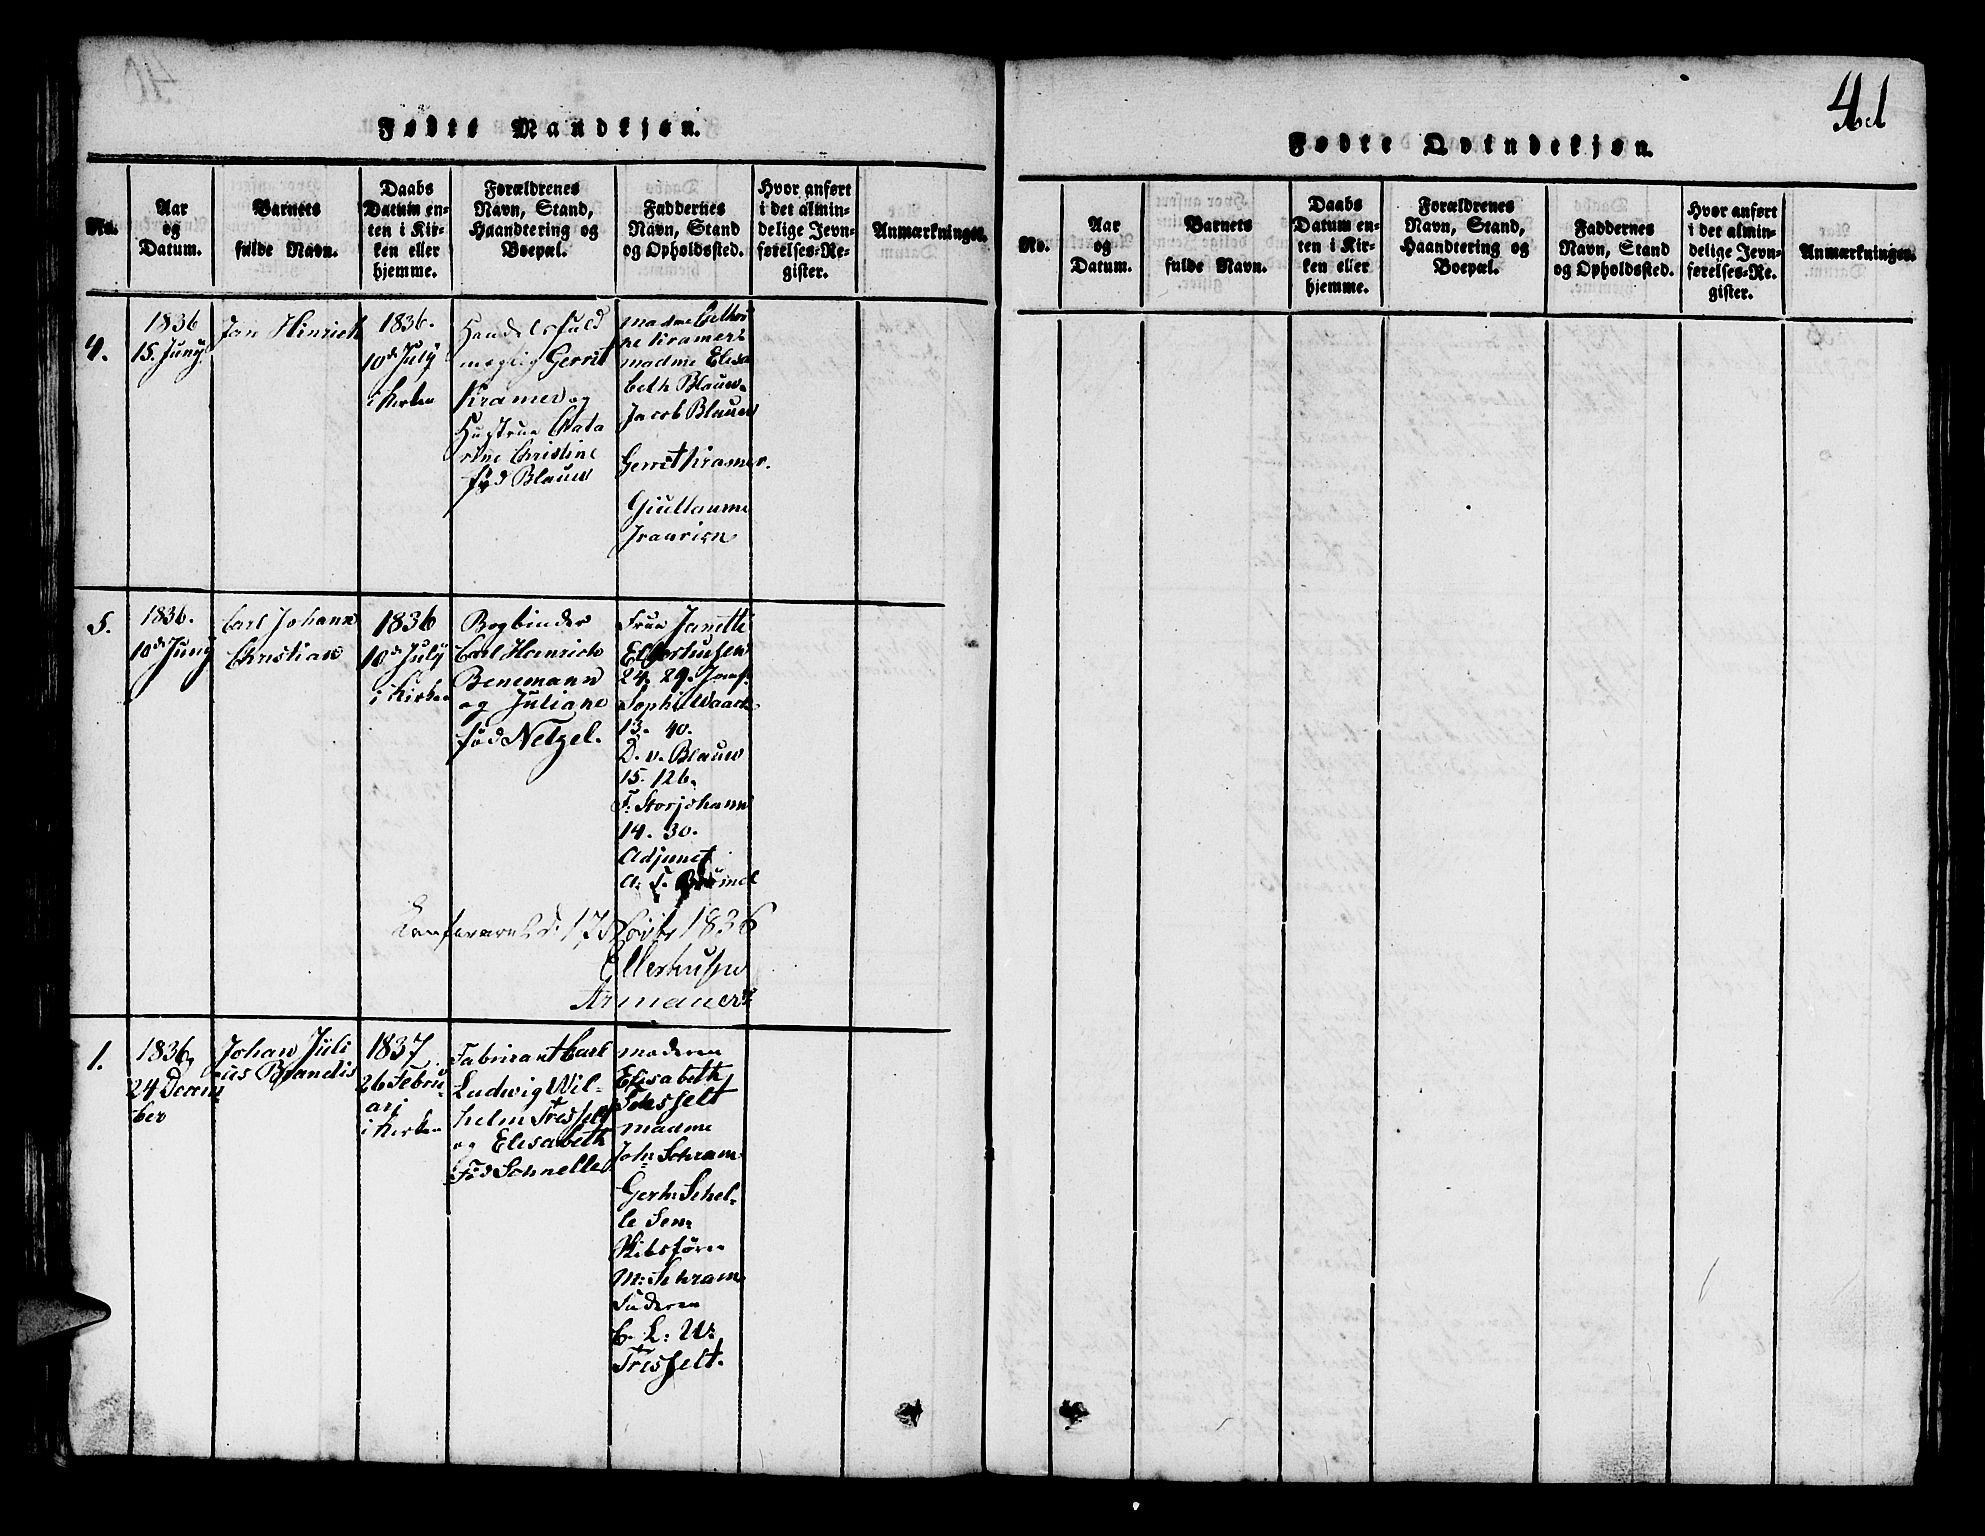 41
Fødte Mandkjøn.
No.
Aar
og
Datum.
Barnets
fulde Navn.
Daabs
Datum en-
ten i Kir-
ken eller
hjemme.
Forældrenes
Navn, Stand,
Haandtering og
Boepæl.
Faddernes
Navn, Stand
og Opholdssted.
Hvor anført
i det almin-
delige Jevn-
førelses-Re-
gister.
Anmærkninger.
4.
1836
15. Juny
Jan Hinrich
1836.
10d July
i Kirken
Handelsfuld
mægtig Gerrit
Kramer og
Hustrue Cata
rine Christine
fød Blauw
madme Cathri
ne Kramer
madme Elisa
beth Blauw
Jacob Blauw
Gerrit Kramer.
Guillaume
5.
1836.
10d Juny
Carl Johann
Christian
1836
10d July
i Kirken
Bogbinder
Carl Heinrich
Benemann
og Juliane
fød Netzel.
Frue Janette
Ellerhusen
24. 29. Jomf.
Sophi Waack
13. 40.
D. v. Blauw
15. 126.
F. Storjohann
14. 30.
Adjunct
A. F.
Confereret d. 17 1836
Ellerhusen
Armauer
1.
1836
24 Decem
ber
Johan Juli
us Brandis
1837
26 Febru
ari
i Kirken
Fabricant Carl
Ludwig Wil-
helm Tresselt
og Elisabeth
Fød Schnelle
moderen
Elisabeth
Tresselt
madme
Joh: Schram
Gerh: Schel-
le Sen:
Skibsfører
M: Schram
Faderen
C. L: W:
Tresselt.
Fødte Qvindekjøn.
No.
Aar
og
Datum.
Barnets
fulde Navn.
Daabs
Datum en-
ten i Kir-
ken eller
hjemme.
Forældrenes
Navn, Stand,
Haandtering og
Boepæl.
Faddernes
Navn, Stand
og Opholdssted.
Hvor anført
i det almin-
delige Jevn-
førelses-Re-
gister.
Anmærkninger.